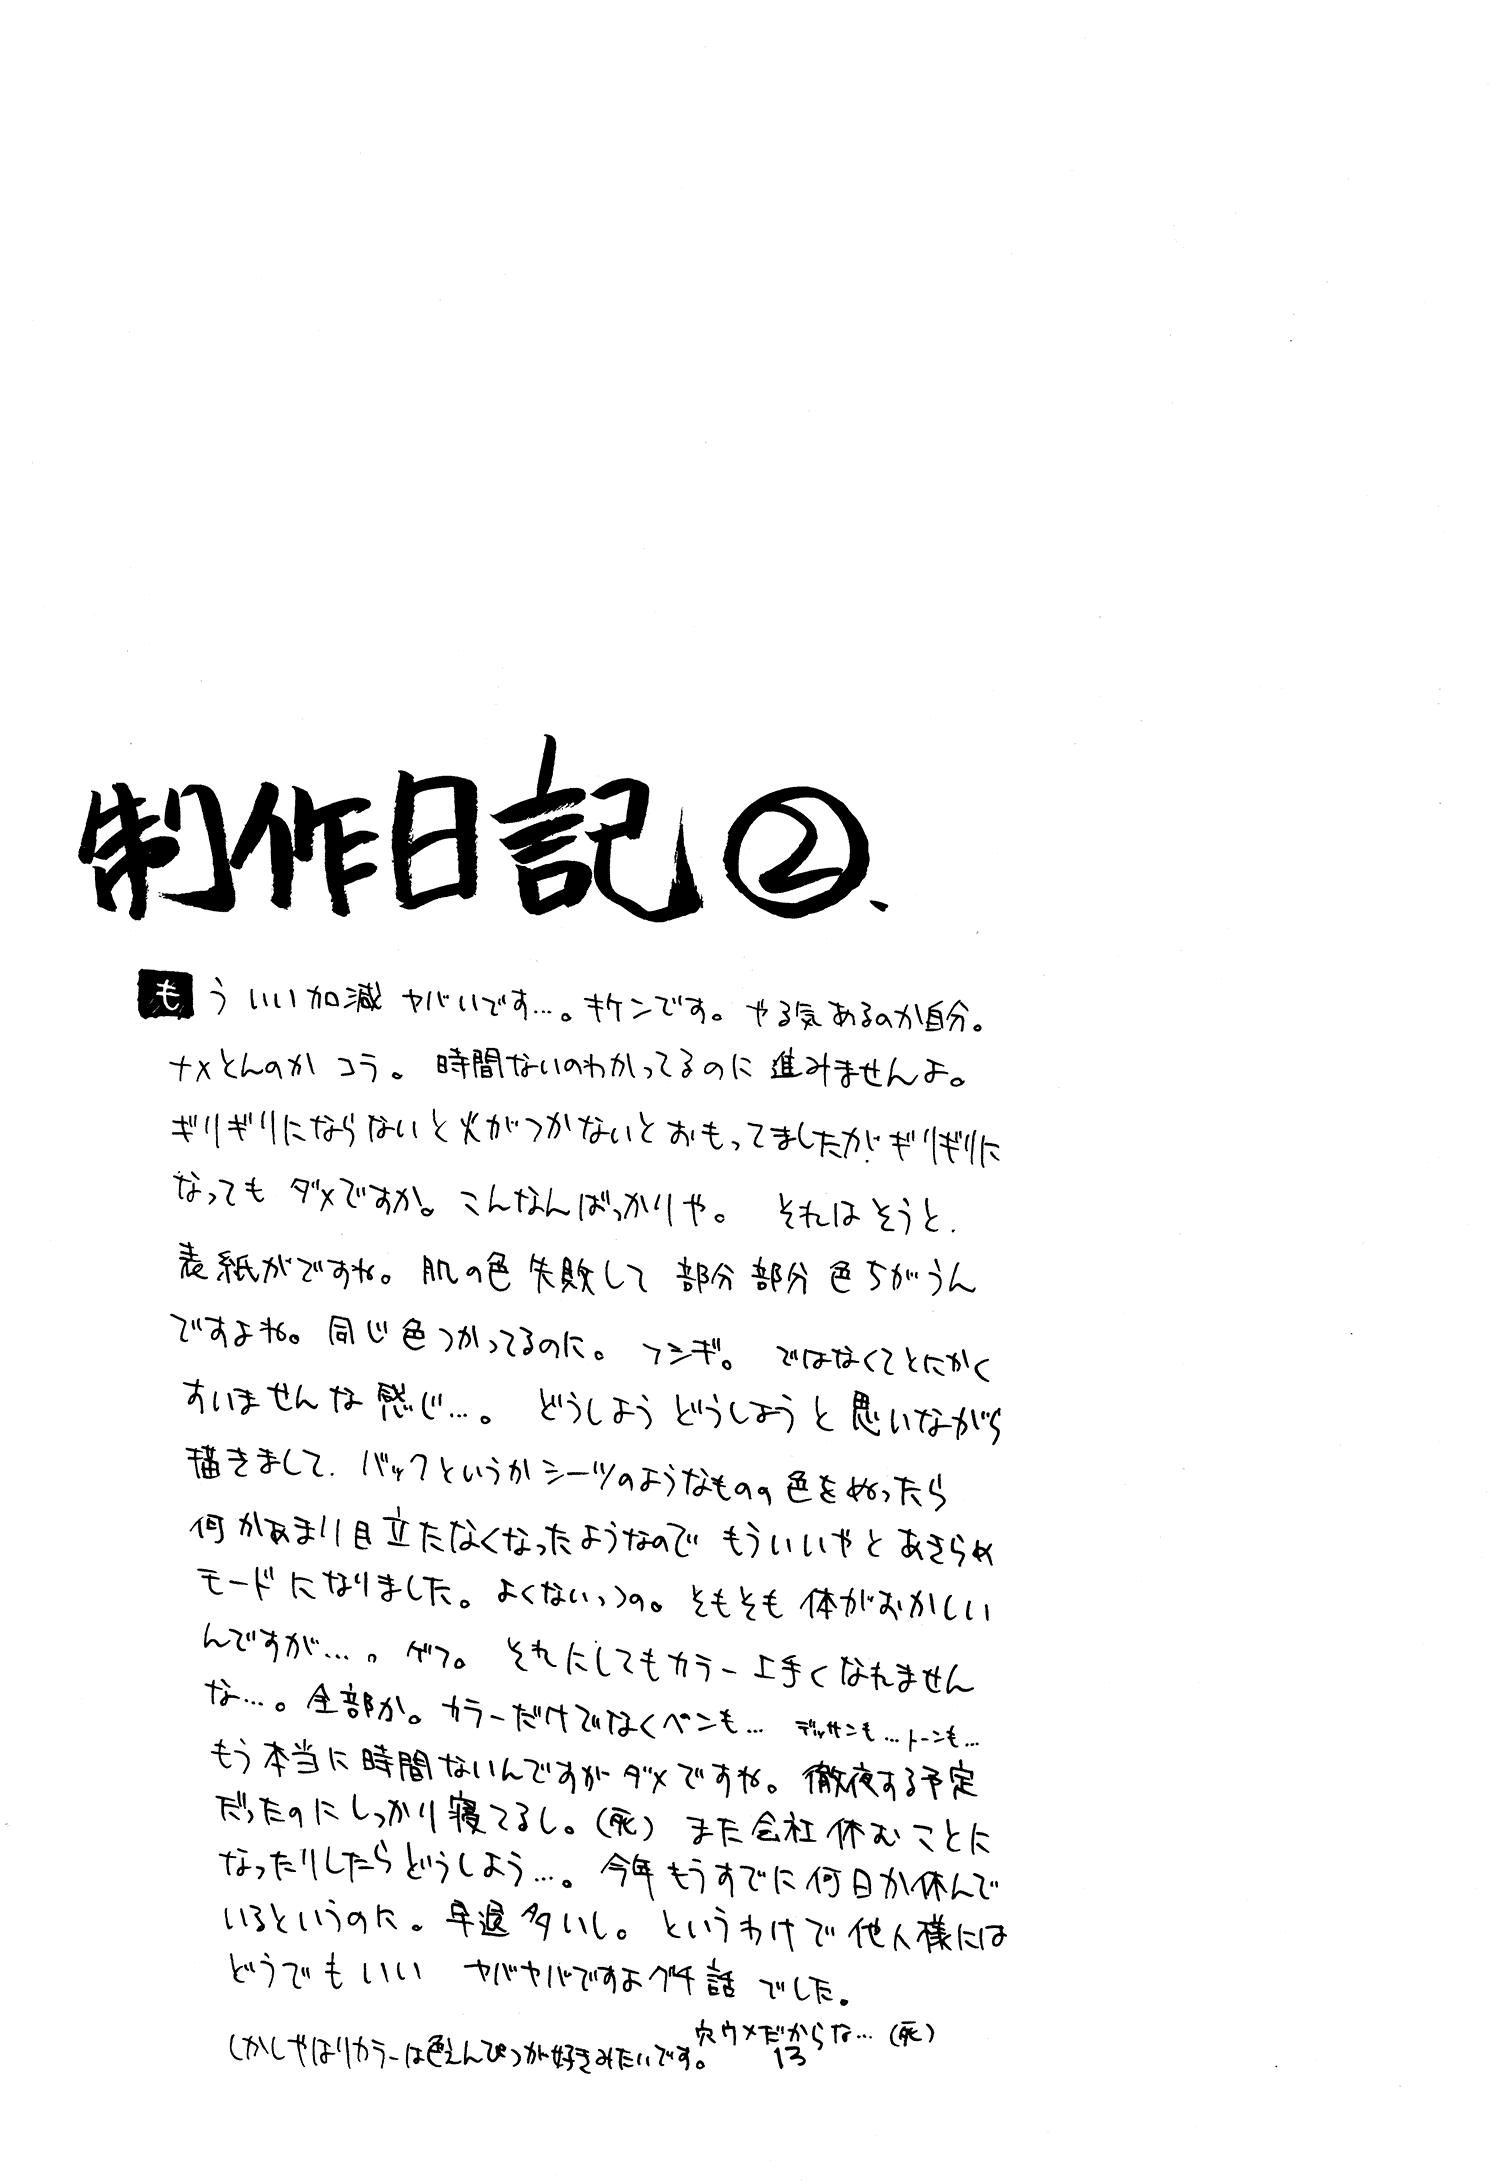 制作日記②、
もう いい加減 ヤバいです…。キケンです。やる気あるのか自分。
ナメとんのか コラ。 時間ないのわかってるのに 進みませんよ。
ギリギリにならないと火がつかないとおもってましたが、ギリギリに
なっても ダメですか。こんなんばっかりや。 それはそうと、
表紙がですね。肌の色 失敗して 部分部分 色ちがうん
ですよね。同じ色つかってるのに。 フシギ。 ではなくてとにかく
すいませんな感じ…。 どうしよう どうしようと 思いながら
描きまして、バックというかシーツのようなものの色をぬったら
何かあまり目立たなくなったようなので もういいやとあきらめ
モードになりました。よくないっつの。そもそも 体がおかしい
んですが…。ゲフ。 それにしてもカラー上手くなれません
な…。全部か。カラーだけでなくペンも… デッサンも…トーンも…
もう本当に時間ないんですがダメですね。徹夜する予定
だったのにしっかり寝てるし。(死) また会社休むことに
なったりしたらどうしよう…。 今年もうすでに何日か休んで
いるというのに。早退多いし。というわけで他人様には
どうでもいい ヤバヤバですよグチ話でした。
穴ウメだからな…(死)
しかしやはりカラーは色えんぴつが好きみたいです。
13